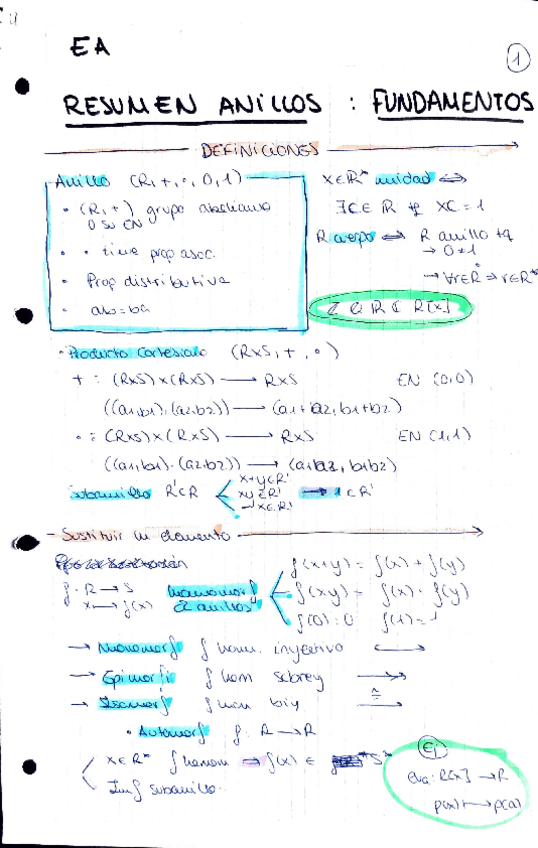 EA
1
RESUMEN ANILLOS : FUNDAMENTOS
DEFINICIONES
Anillo (R, +, ·, 0, 1)
· (R, +) grupo abeliano
0 su EN
· · tiene prop asoc.
· Prop distributiva
· ab=ba
x∈R* unidad ⟺
∃c∈R tq xc=1
R cuerpo ⟺ R anillo tq
→ 0≠1
→ ∀r∈R ⇒ r∈R*
ℤ ℚ ℝ ℂ R[x]
· Producto cartesiano (R×S, +, ·)
+ : (R×S)×(R×S) → R×S EN (0,0)
((a1,b1),(a2,b2)) → (a1+a2, b1+b2)
· : (R×S)×(R×S) → R×S EN (1,1)
((a1,b1),(a2,b2)) → (a1a2, b1b2)
Subanillo R'⊂R
x+y∈R'
xy∈R' → 1∈R'
-x∈R'
Sustituir un elemento
f: R → S
x → f(x)
homomorf
de anillos
f(x+y) = f(x) + f(y)
f(xy) = f(x) · f(y)
f(0)=0 f(1)=1
→ Monomorf f hom. inyectivo
→ Epimorf f hom sobrey
→ Isomorf f hom biy ≅
· Automorf f: R → R
x∈R* f homom ⇒ f(x) ∈ S*
Im f subanillo.
Ej
eva: R[x] → R
p(x) ↦ p(a)